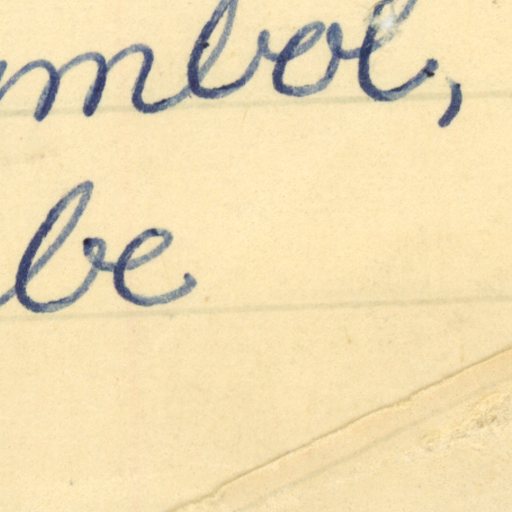 ymbol,
be